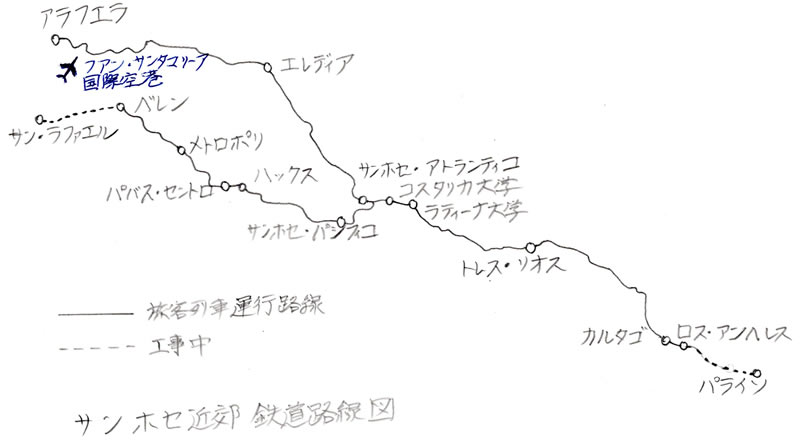 アラフエラ
フアン・サンタマリーア
国際空港
エレディア
ベレン
サン・ラファエル
メトロポリ
パバス・セントロ
ハックス
サンホセ・アトランティコ
コスタリカ大学
ラティーナ大学
サンホセ・パシフィコ
トレス・リオス
カルタゴ
ロス・アンヘレス
パライソ
旅客列車運行路線
工事中
サンホセ近郊鉄道路線図